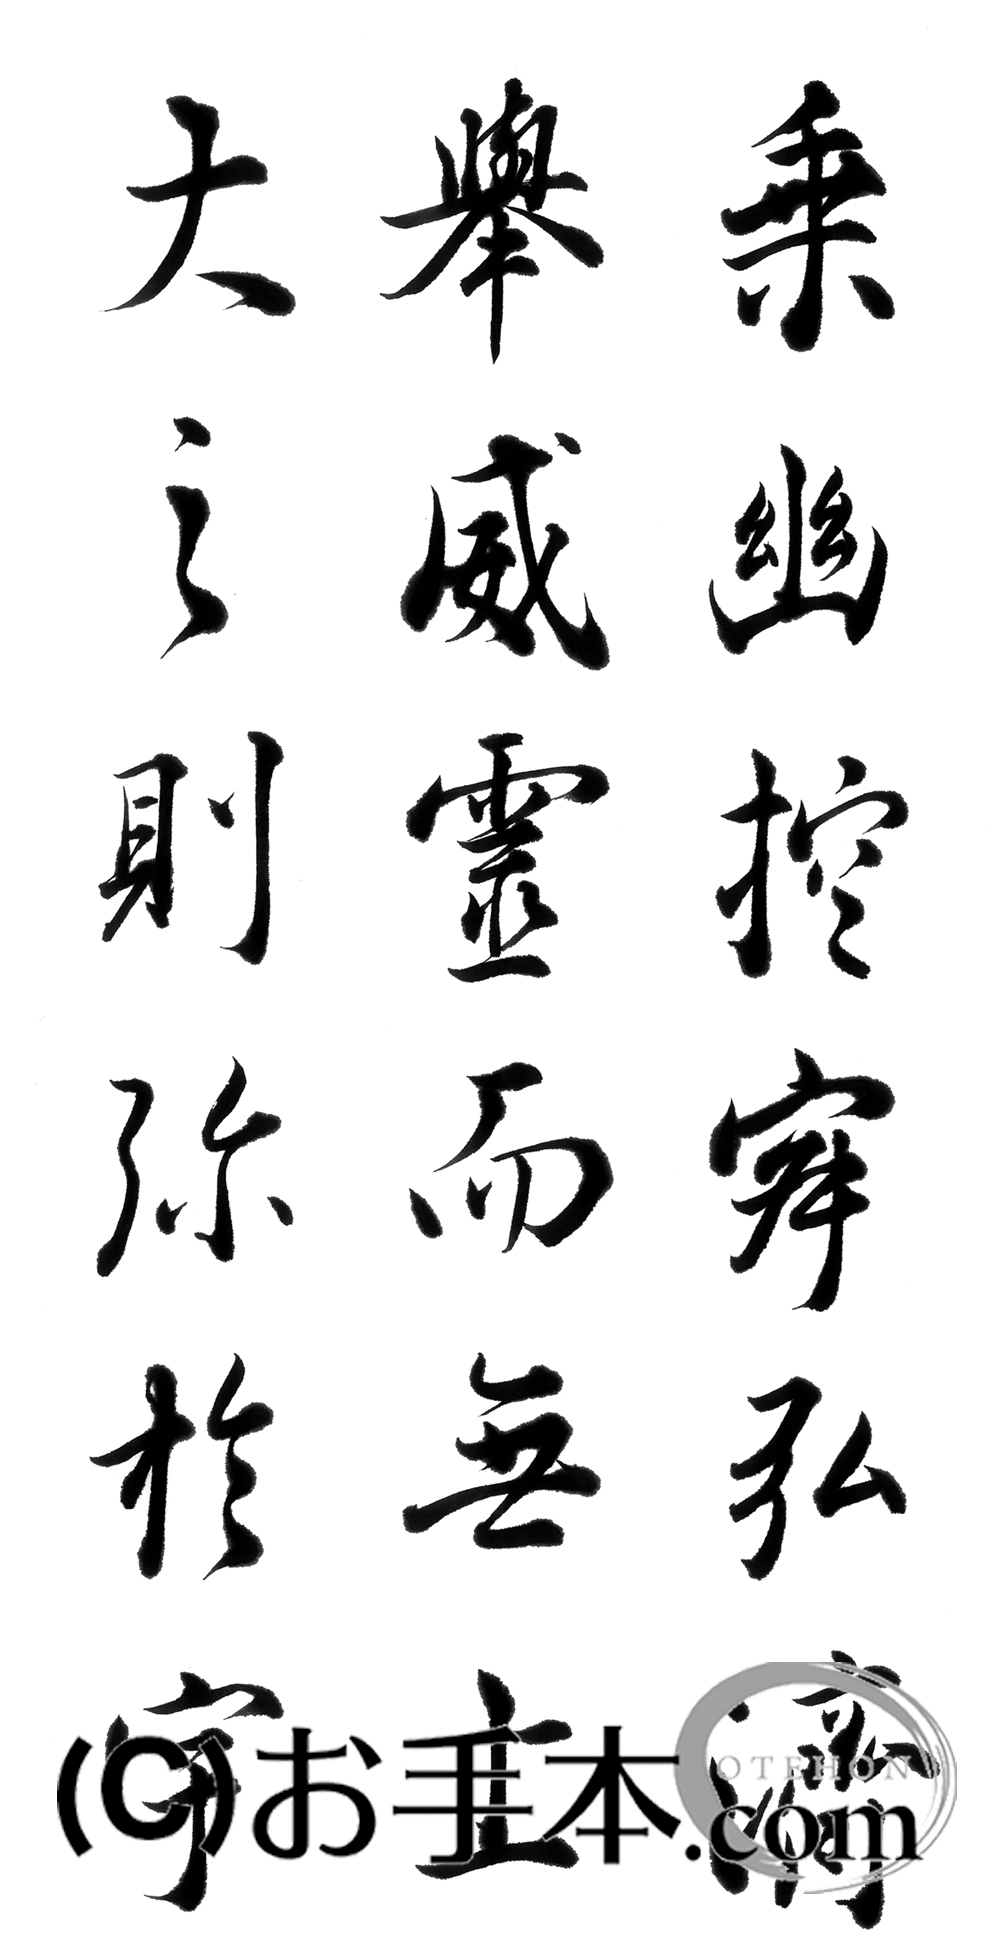 乗幽控寂弘濟
擧威靈而無上
大之則弥於宇
(C)お手本.com
OTEHON